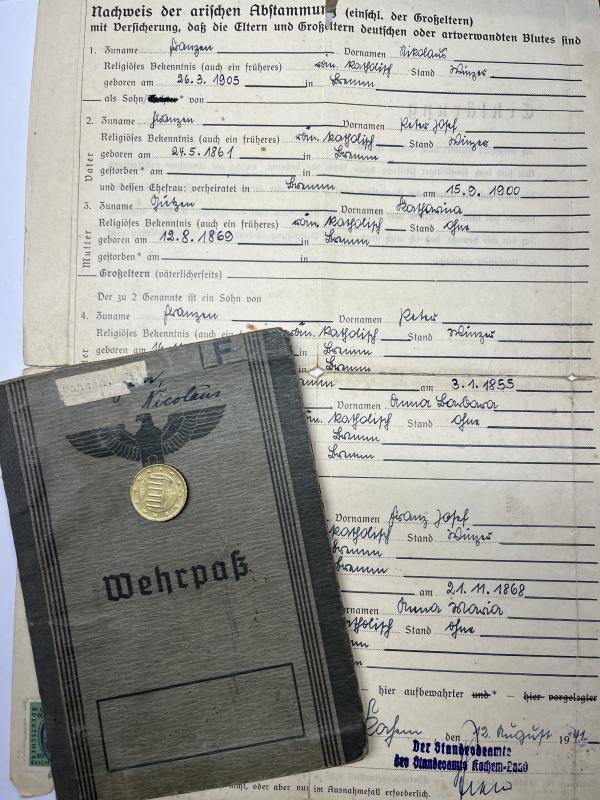 Nachweis der arischen Abstammung (einschl. der Großeltern)
mit Versicherung, daß die Eltern und Großeltern deutschen oder artverwandten Blutes sind
1. Zuname Franzen Vornamen Nikolaus
Religiöses Bekenntnis (auch ein früheres) röm. katholisch Stand Winzer
geboren am 26.3.1905 in Bremm
als Sohn von
2. Zuname Franzen Vornamen Peter Josef
Religiöses Bekenntnis (auch ein früheres) röm. katholisch Stand Winzer
geboren am 24.5.1861 in Bremm
gestorben* am in
und dessen Ehefrau: verheiratet in Bremm am 15.9.1900
Vater
3. Zuname Vornamen Katharina
Religiöses Bekenntnis (auch ein früheres) röm. katholisch Stand ohne
geboren am 12.8.1869 in Bremm
gestorben* am in
Mutter
Großeltern (väterlicherseits)
Der zu 2 Genannte ist ein Sohn von
4. Zuname Franzen Vornamen Peter
Religiöses Bekenntnis (auch ein röm. katholisch Stand Winzer
geboren am in Bremm
Bremm
am 3.1.1855
Anna Barbara
katholisch Stand ohne
Bremm
Bremm
Vornamen Franz Josef
katholisch Stand Winzer
Bremm
Bremm
am 21.11.1868
Anna Maria
katholisch Stand ohne
Bremm
hier aufbewahrter und* — hier vorgelegter
Cochem den 12. August 1941
Der Standesbeamte
des Standesamts Kochem-Land
nicht, oder aber nur im Ausnahmefall erforderlich.
F
Nicolaus
Wehrpaß